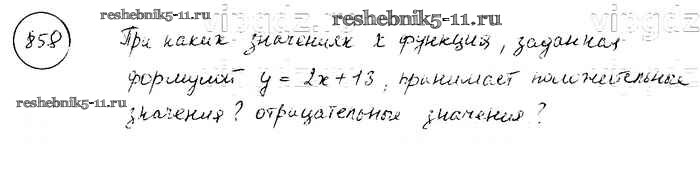 reshebnik5-11.ru
858 При каких значениях x функция, заданная
формулой y = 2x+13, принимает положительные
reshebnik5-11.ru
значения? отрицательные значения?
reshebnik5-11.ru